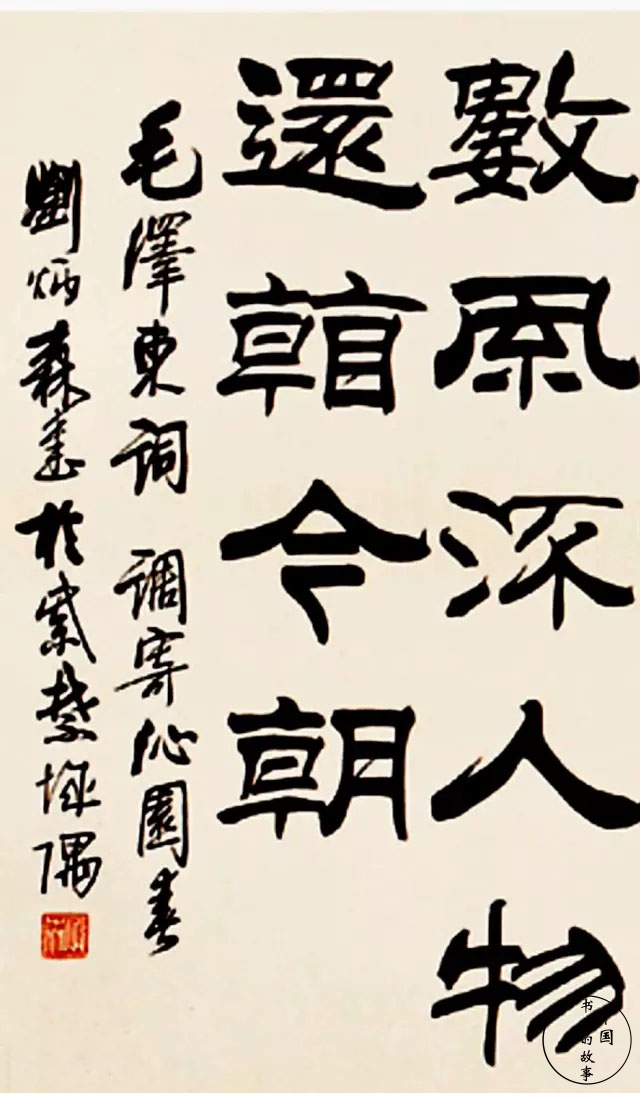 數風流人物
還看今朝
毛澤東詞 調寄沁園春
劉炳森書於紫禁城隅
国
书的故事